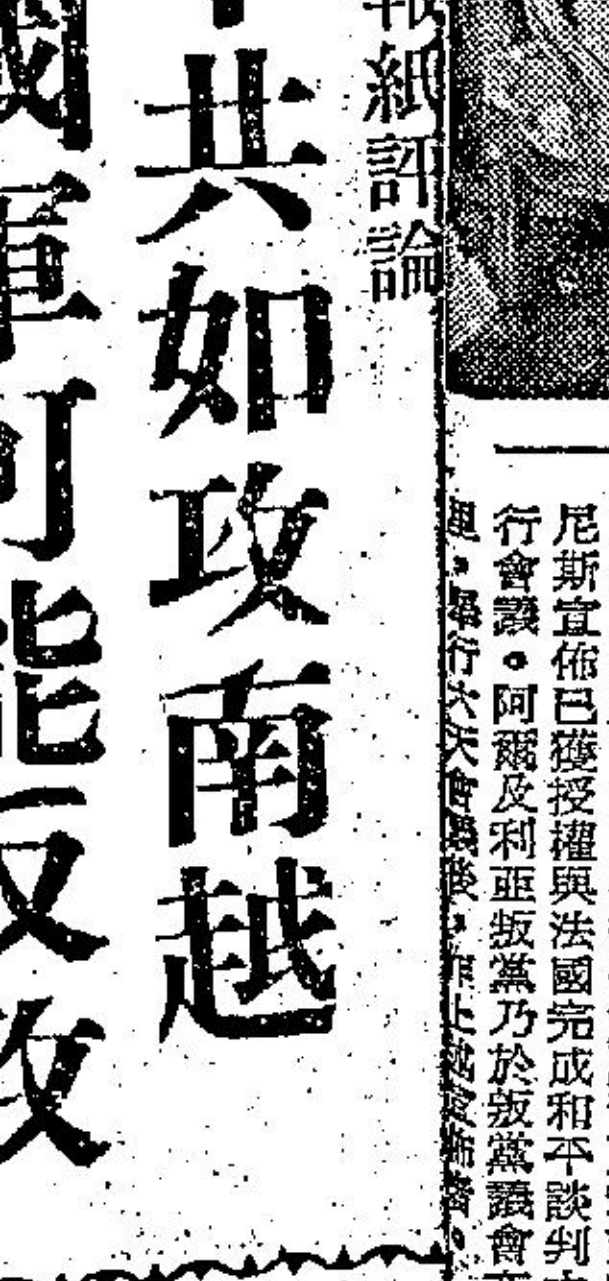 尼斯宣佈已獲授權與法國完成和平談判
行會議。阿爾及利亜叛黨乃於叛黨議會
舉行六天會議後，昨上
報紙評論
共如攻南越
國軍可能反攻